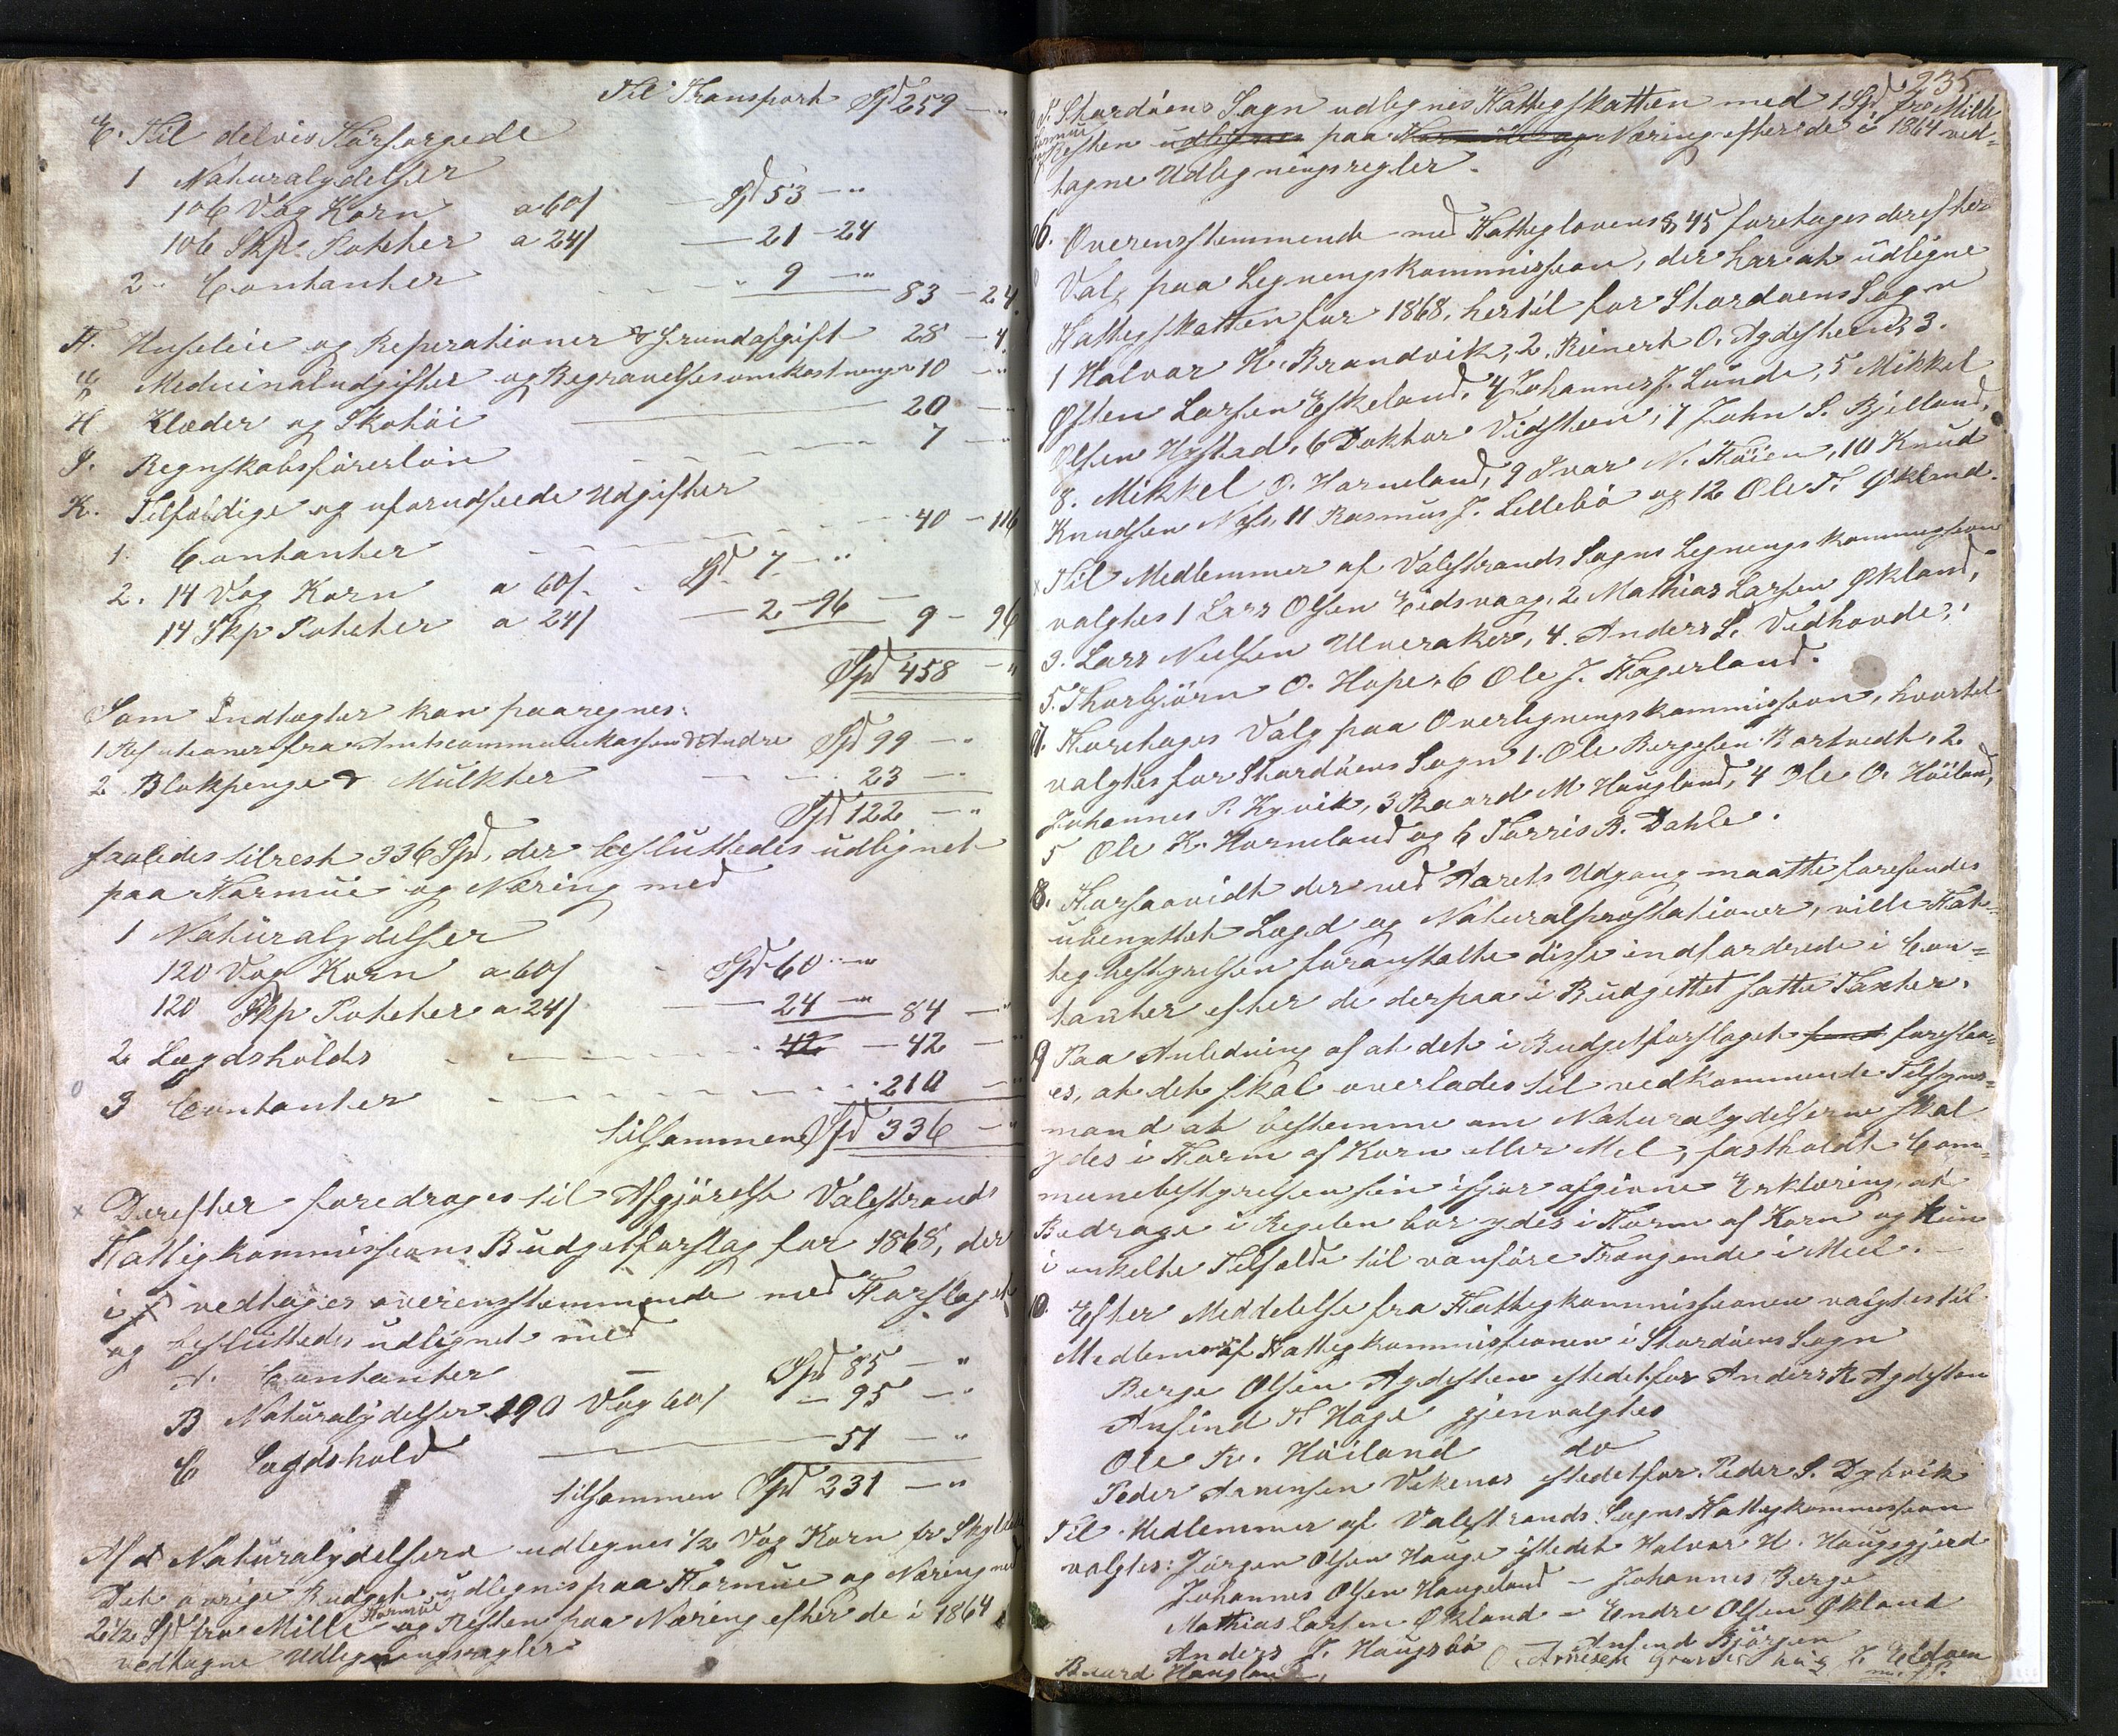 Til Transport Spd 259 — "
E. Til delvis Forsørgede
1 Naturalydelser
106 Vog Korn a 60/ — Spd 53 — "
106 Skp. Poteter a 24/ — 21 - 24
2. Contanter 9 — " 83 - 24
F. Husleie og Reperationer & Grundafgift 28 - 4
G Medicinaludgifter og Begravelsesomkostninger 10 — "
H Klæder og Skotøi 20 —
J. Regnskabsførerløn 7 —
K. Tilfældige og uforudseede Udgifter
40 - 116
1. Contanter Spd 7 — "
2. 14 Vog Korn a 60/
14 Skp Poteter a 24/ — 2 - 96 — 9 - 96
Spd 458 — "
Som Indtægter kan paaregnes:
1 Refusioner fra Amtscommunekassen & Andre Spd 99 — "
2 Blokpenge & Mulkter 23 —
Spd 122 — "
saaledes tilrest 336 Spd, der besluttedes udlignet
paa Formue og Næring med
1 Naturalydelser
120 Vog Korn a 60/ Spd 60 — "
120 Skp Poteter a 24/ — 24 — " 84 — "
2 Lægdsholds 42 — 42 —
3 Contanter 210 —
tilsammen Spd 336 — "
x Derefter foredroges til Afgjørelse Valestrands
Fattigkommissions Budgetforslag for 1868, der
vedtoges overensstemmende med Forslaget
og besluttedes udlignet med
A. Contanter — Spd 85 — "
B Naturalydelser 190 Vog 60/ — 95 — "
C Lægdshold 51 — "
tilsammen Spd 231 — "
Af Naturalydelserne udlegnes 1/2 Vog Korn pr Skylddaler
Det øvrige Budget udlignes paa Formue og Næring med
2 1/2 Spd pro Mille Formue og Resten paa Næring efter de i 1864
vedtagne Udlegningsregler
235
I Stordøens Sogn udlignes Fattigskatten med 1 Spd pro Mille
Formue
Resten udlignes paa Formue og Næring efter de i 1864 ved-
tagne Udlegningsregler.
66. Overensstemmende med Fattiglovens § 45 foretoges derefter
Valg paa Legningskommission, der har at udligne
Fattigskatten for 1868, hertil for Stordøens Sogn
1 Halvor H. Brandvik, 2. Reinert O. Agdesteen, 3.
Østen Larsen Eskeland, 4 Johannes J. Lunde, 5 Mikkel
Olsen Hystad, 6 Doktor Vidsteen, 7 John S. Bjelland,
8. Mikkel O. Horneland, 9 Ivar N. Føien, 10 Knud
Knudsen Næs, 11 Rasmus J. Lillebø og 12 Ole T. Økland.
x Til Medlemmer af Valestrands Sogns Legningskommission
valgtes 1 Lars Olsen Eidsvaag, 2 Mathias Larsen Økland,
3. Lars Nielsen Ulveraker, 4. Anders L. Vedhovde,
5. Thorbjørn O. Hope, 6 Ole J. Fagerland.
Foretoges Valg paa Overligningskommission, hvortil
valgtes for Stordøens Sogn 1. Ole Bergesen Bortvedt, 2
Johannes P. Kyvik, 3 Baard M Haugland, 4 Ole O. Høiland,
5 Ole K. Horneland og 6 Torris B. Dahle.
8. Forsaavidt der ved Aarets Udgang maatte forefindes
ubenyttet Lægd og Naturalprestationer, vilde Fat-
tigbestyrelsen foranstalte disse indfordrede i Con-
tanter efter de derpaa i Budgettet satte Taxter.
9 Paa Anledning af at det i Budgetforslaget foreslaa-
es, at det skal overlades til vedkommende Tilsyns-
mand at bestemme om Naturalydelserne skal
ydes i Form af Korn eller Mel, fastholdt Com-
munebestyrelsen sin ifjor afgivne Erklæring, at
Bidrage i Regelen bør ydes i Form af Korn og kun
i enkelte Tilfælde til vanføre Trængende i Meel.
10. Efter Meddelelse fra Fattigkommissionen valgtes til
Medlemmer af Fattigkommissionen i Stordøens Sogn
Berge Olsen Agdesten istedetfor Anders R. Agdesten
Anfind H Hage gjenvalgtes
Ole Kr. Høiland do
Peder Arnensen Vikenes istedetfor Peder S. Dybvik
Til Medlemmer af Valestrands Sogns Fattigkommission
valgtes: Jørgen Olsen Hauge istedet Halvor H. Haugsgjerd
Johannes Olsen Haugeland — Johannes Berge
Mathias Larsen Økland — Endre Olsen Økland
Anders J. Haugsbø — Anfind Bjørgen
Baard Haugland, O. Arnesen